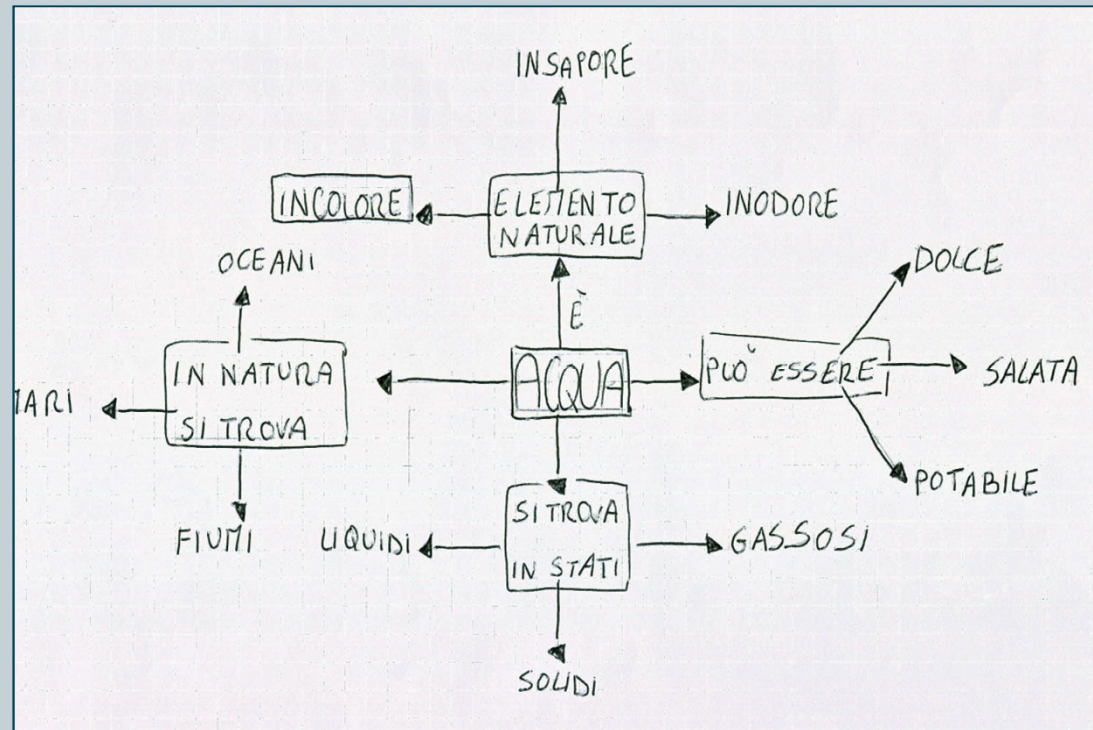 INSAPORE
INCOLORE
ELEMENTO
NATURALE
INODORE
OCEANI
È
DOLCE
IN NATURA
SI TROVA
ACQUA
PUÒ ESSERE
SALATA
ARI
FIUMI
LIQUIDI
SI TROVA
IN STATI
GASSOSI
POTABILE
SOLIDI